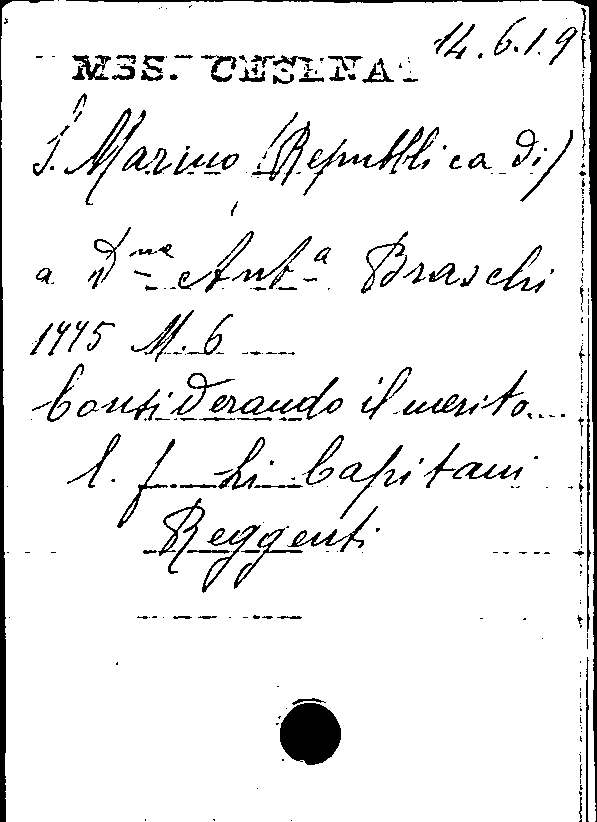 14.6.1.9
MSS. CESENAT
S. Marino (Repubblica di)
a Dne Anta Braschi
1775 M. 6
Considerando il merito...
l. f. Li Capitani
Reggenti